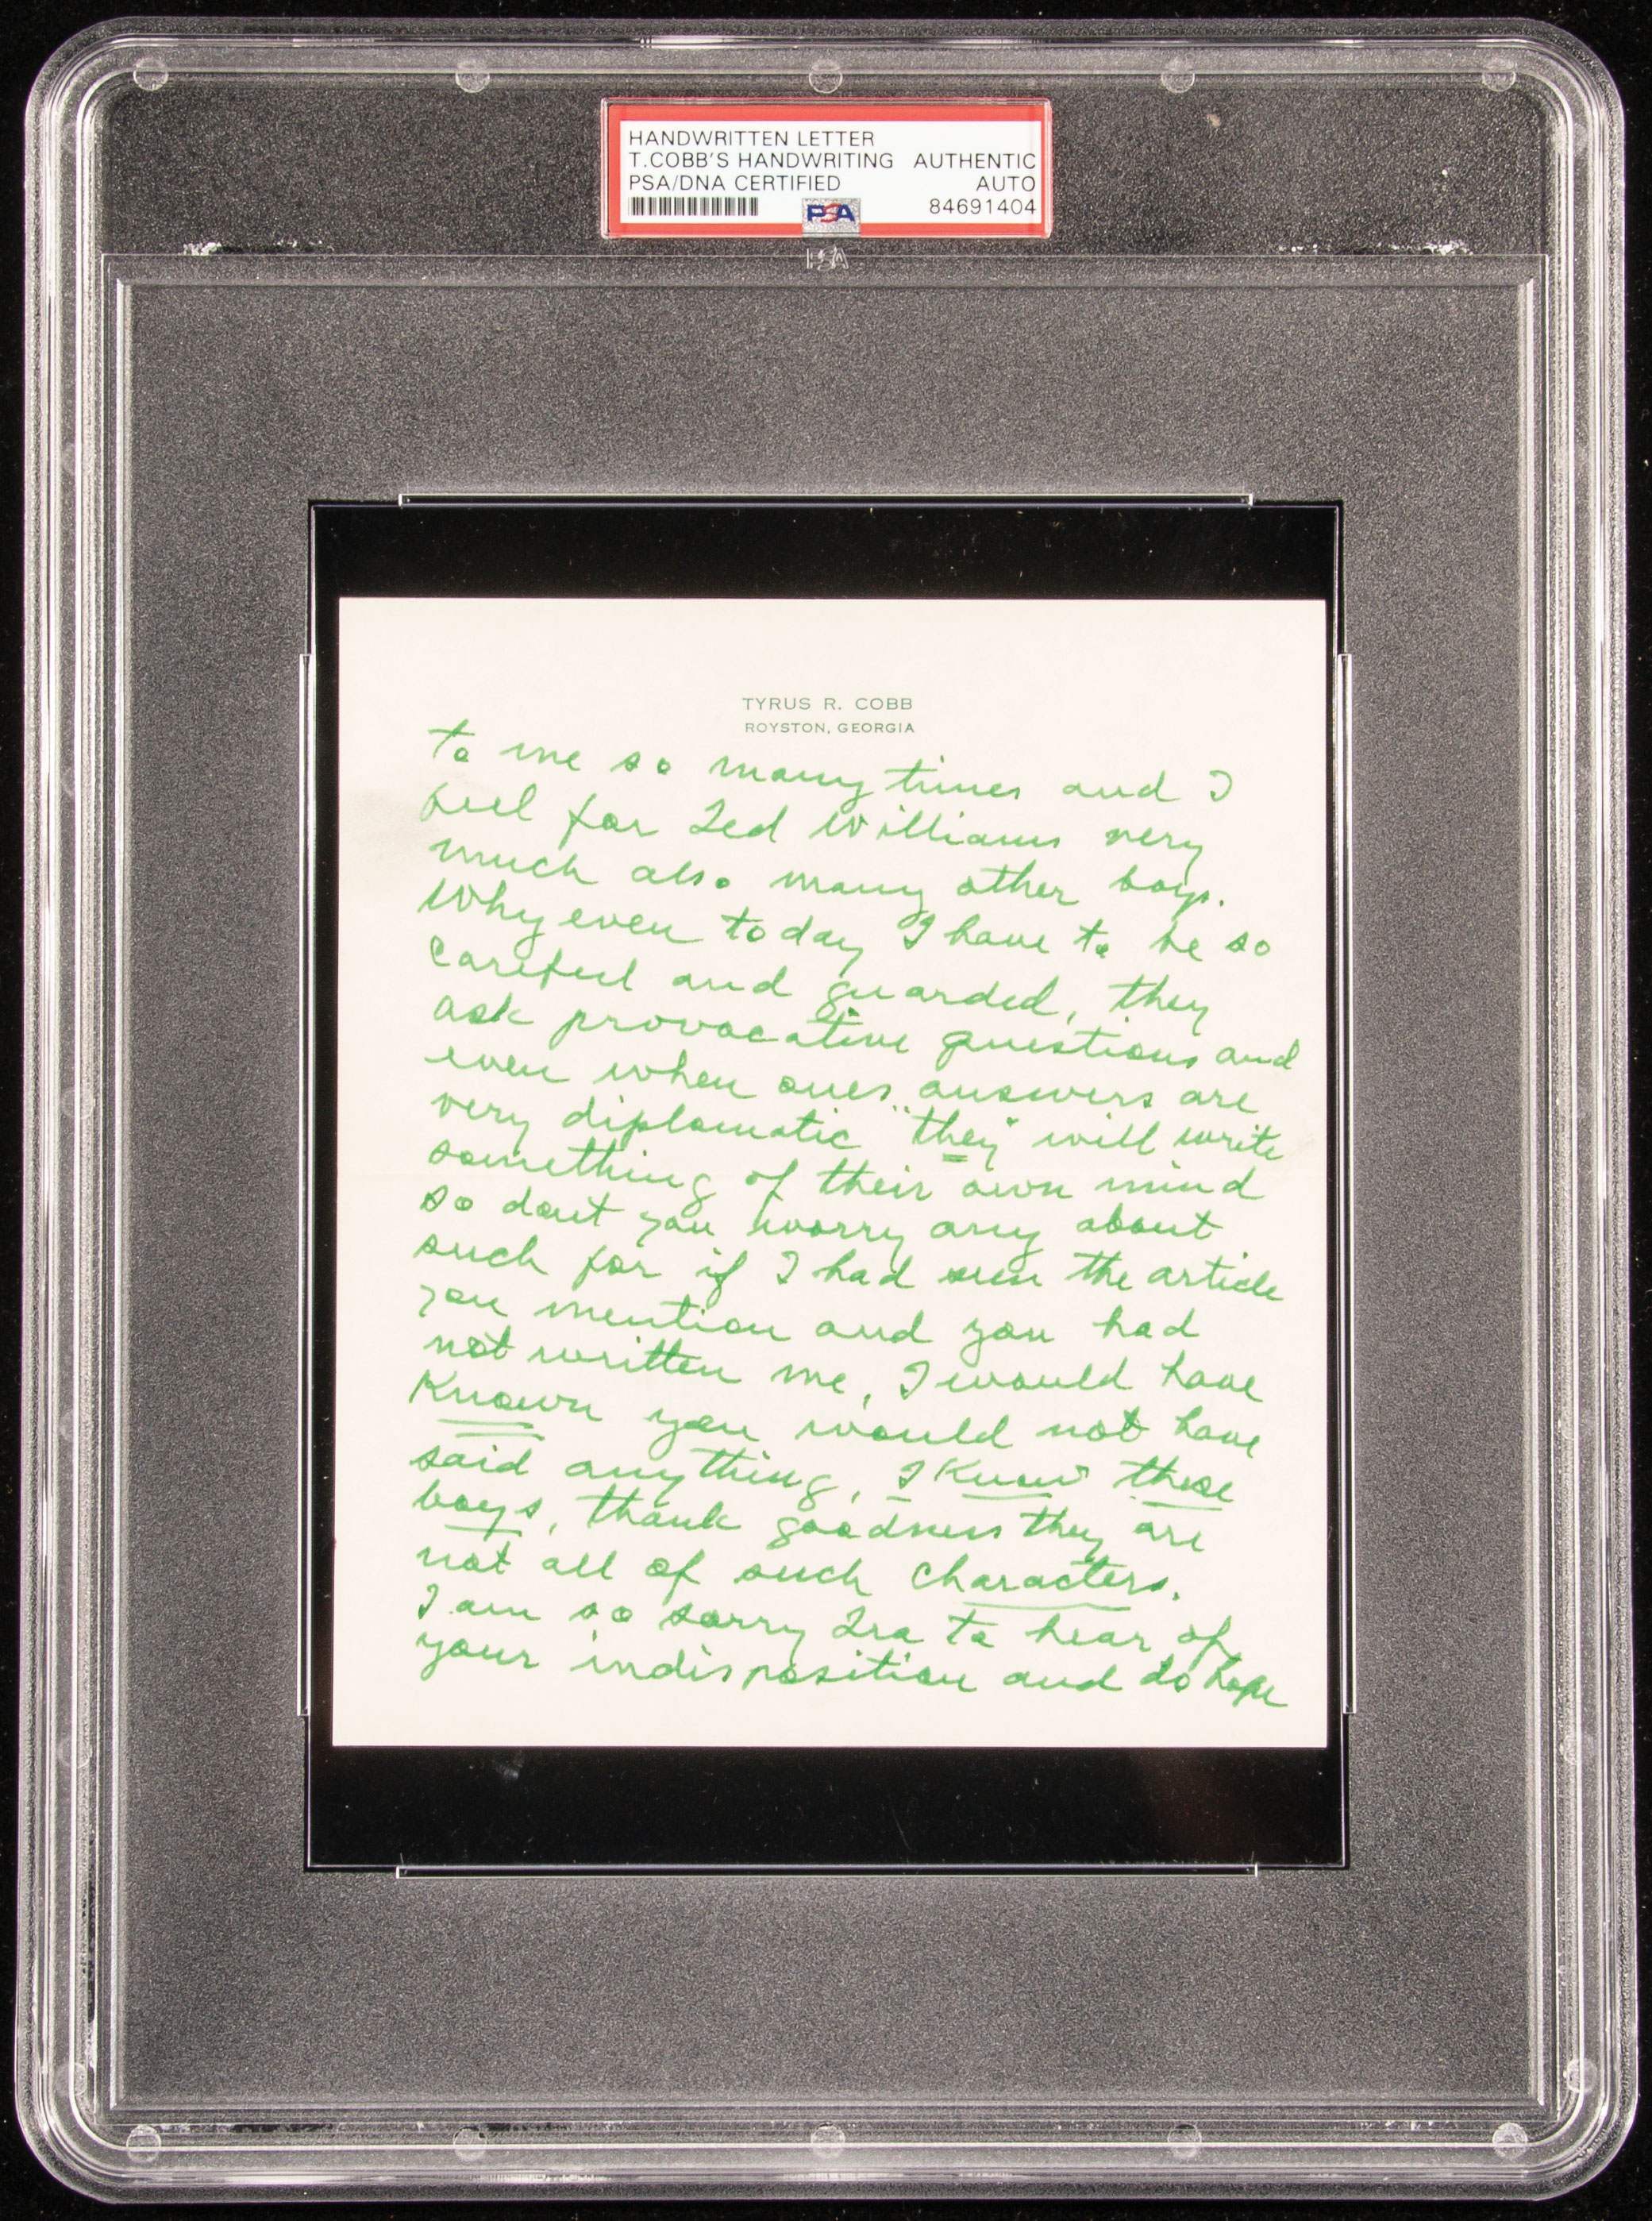 HANDWRITTEN LETTER
T.COBB'S HANDWRITING AUTHENTIC
PSA/DNA CERTIFIED AUTO
PSA 84691404
PSA
TYRUS R. COBB
ROYSTON, GEORGIA
to me so many times and I
feel for Ted Williams very
much also many other boys.
Why even today I have to be so
careful and guarded, they
ask provocative questions and
even when ones answers are
very diplomatic "they" will write
something of their own mind
so dont you worry any about
such for if I had seen the article
you mention and you had
not written me, I would have
Known you would not have
said anything, I Know these
boys, thank goodness they are
not all of such characters.
I am so sorry Ira to hear of
your indisposition and do hope